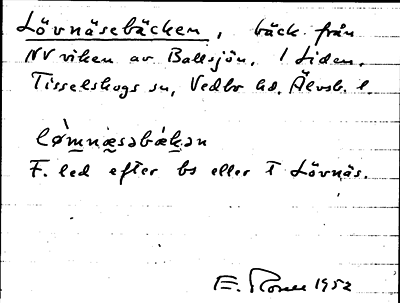 Lövnäsebäcken, bäck från
NV viken av Ballsjön. I Liden,
Tisselskogs sn, Vedbo hd. Älvsb. l.
lø̀mnæsəbækən
F. led efter bs eller T Lövnäs.
E. 1952